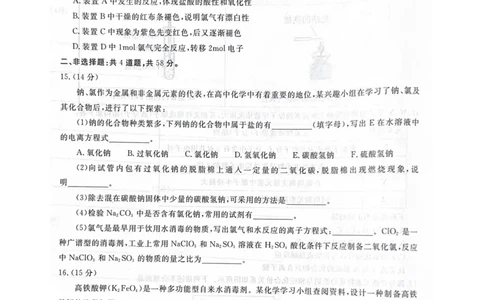 A. 装置 A 中发生的反应,体现盐酸的酸性和氧化性
B. 装置 B 中干燥的红布条褪色,说明氯气有漂白性
C. 装置 C 中现象为紫色先变红色,后又逐渐褪色
D. 装置 D 中 1mol 氯气完全反应,转移 2mol 电子
二、非选择题:共 4 道题,共 58 分。
15. (14 分)
钠、氯作为金属和非金属元素的代表,在高中化学中有着重要的地位,某兴趣小组在学习了钠、氯及
其化合物后,进行了以下探索:
(1)钠的化合物种类繁多,下列钠的化合物中属于盐的有________(填字母),写出 E 在水溶液中
的电离方程式________。
A. 氧化钠 B. 过氧化钠 C. 氯化钠 D. 氢氧化钠 E. 碳酸氢钠 F. 硫酸氢钠
(2)向试管内包有过氧化钠的脱脂棉上通入一定量的二氧化碳,脱脂棉出现燃烧现象,说
明________。
(3)除去混在碳酸钠固体中少量的碳酸氢钠,可采用的方法是________。
(4)检验 Na₂CO₃ 中是否含有氯化钠,常用的试剂有________。
(5)氯气是最早用于饮用水消毒的物质,写出氯气和水反应的离子方程式:________、ClO₂ 是一
种广谱型的消毒剂,工业上常用 NaClO₃ 和 Na₂SO₃ 溶液在 H₂SO₄ 酸化条件下反应制备二氧化氯,反应
中 NaClO₃ 和 Na₂SO₃ 的物质的量之比为________。
16. (15 分)
高铁酸钾(K₂FeO₄)是一种多功能型自来水消毒剂。某化学学习小组查阅资料,设计一种制备高铁